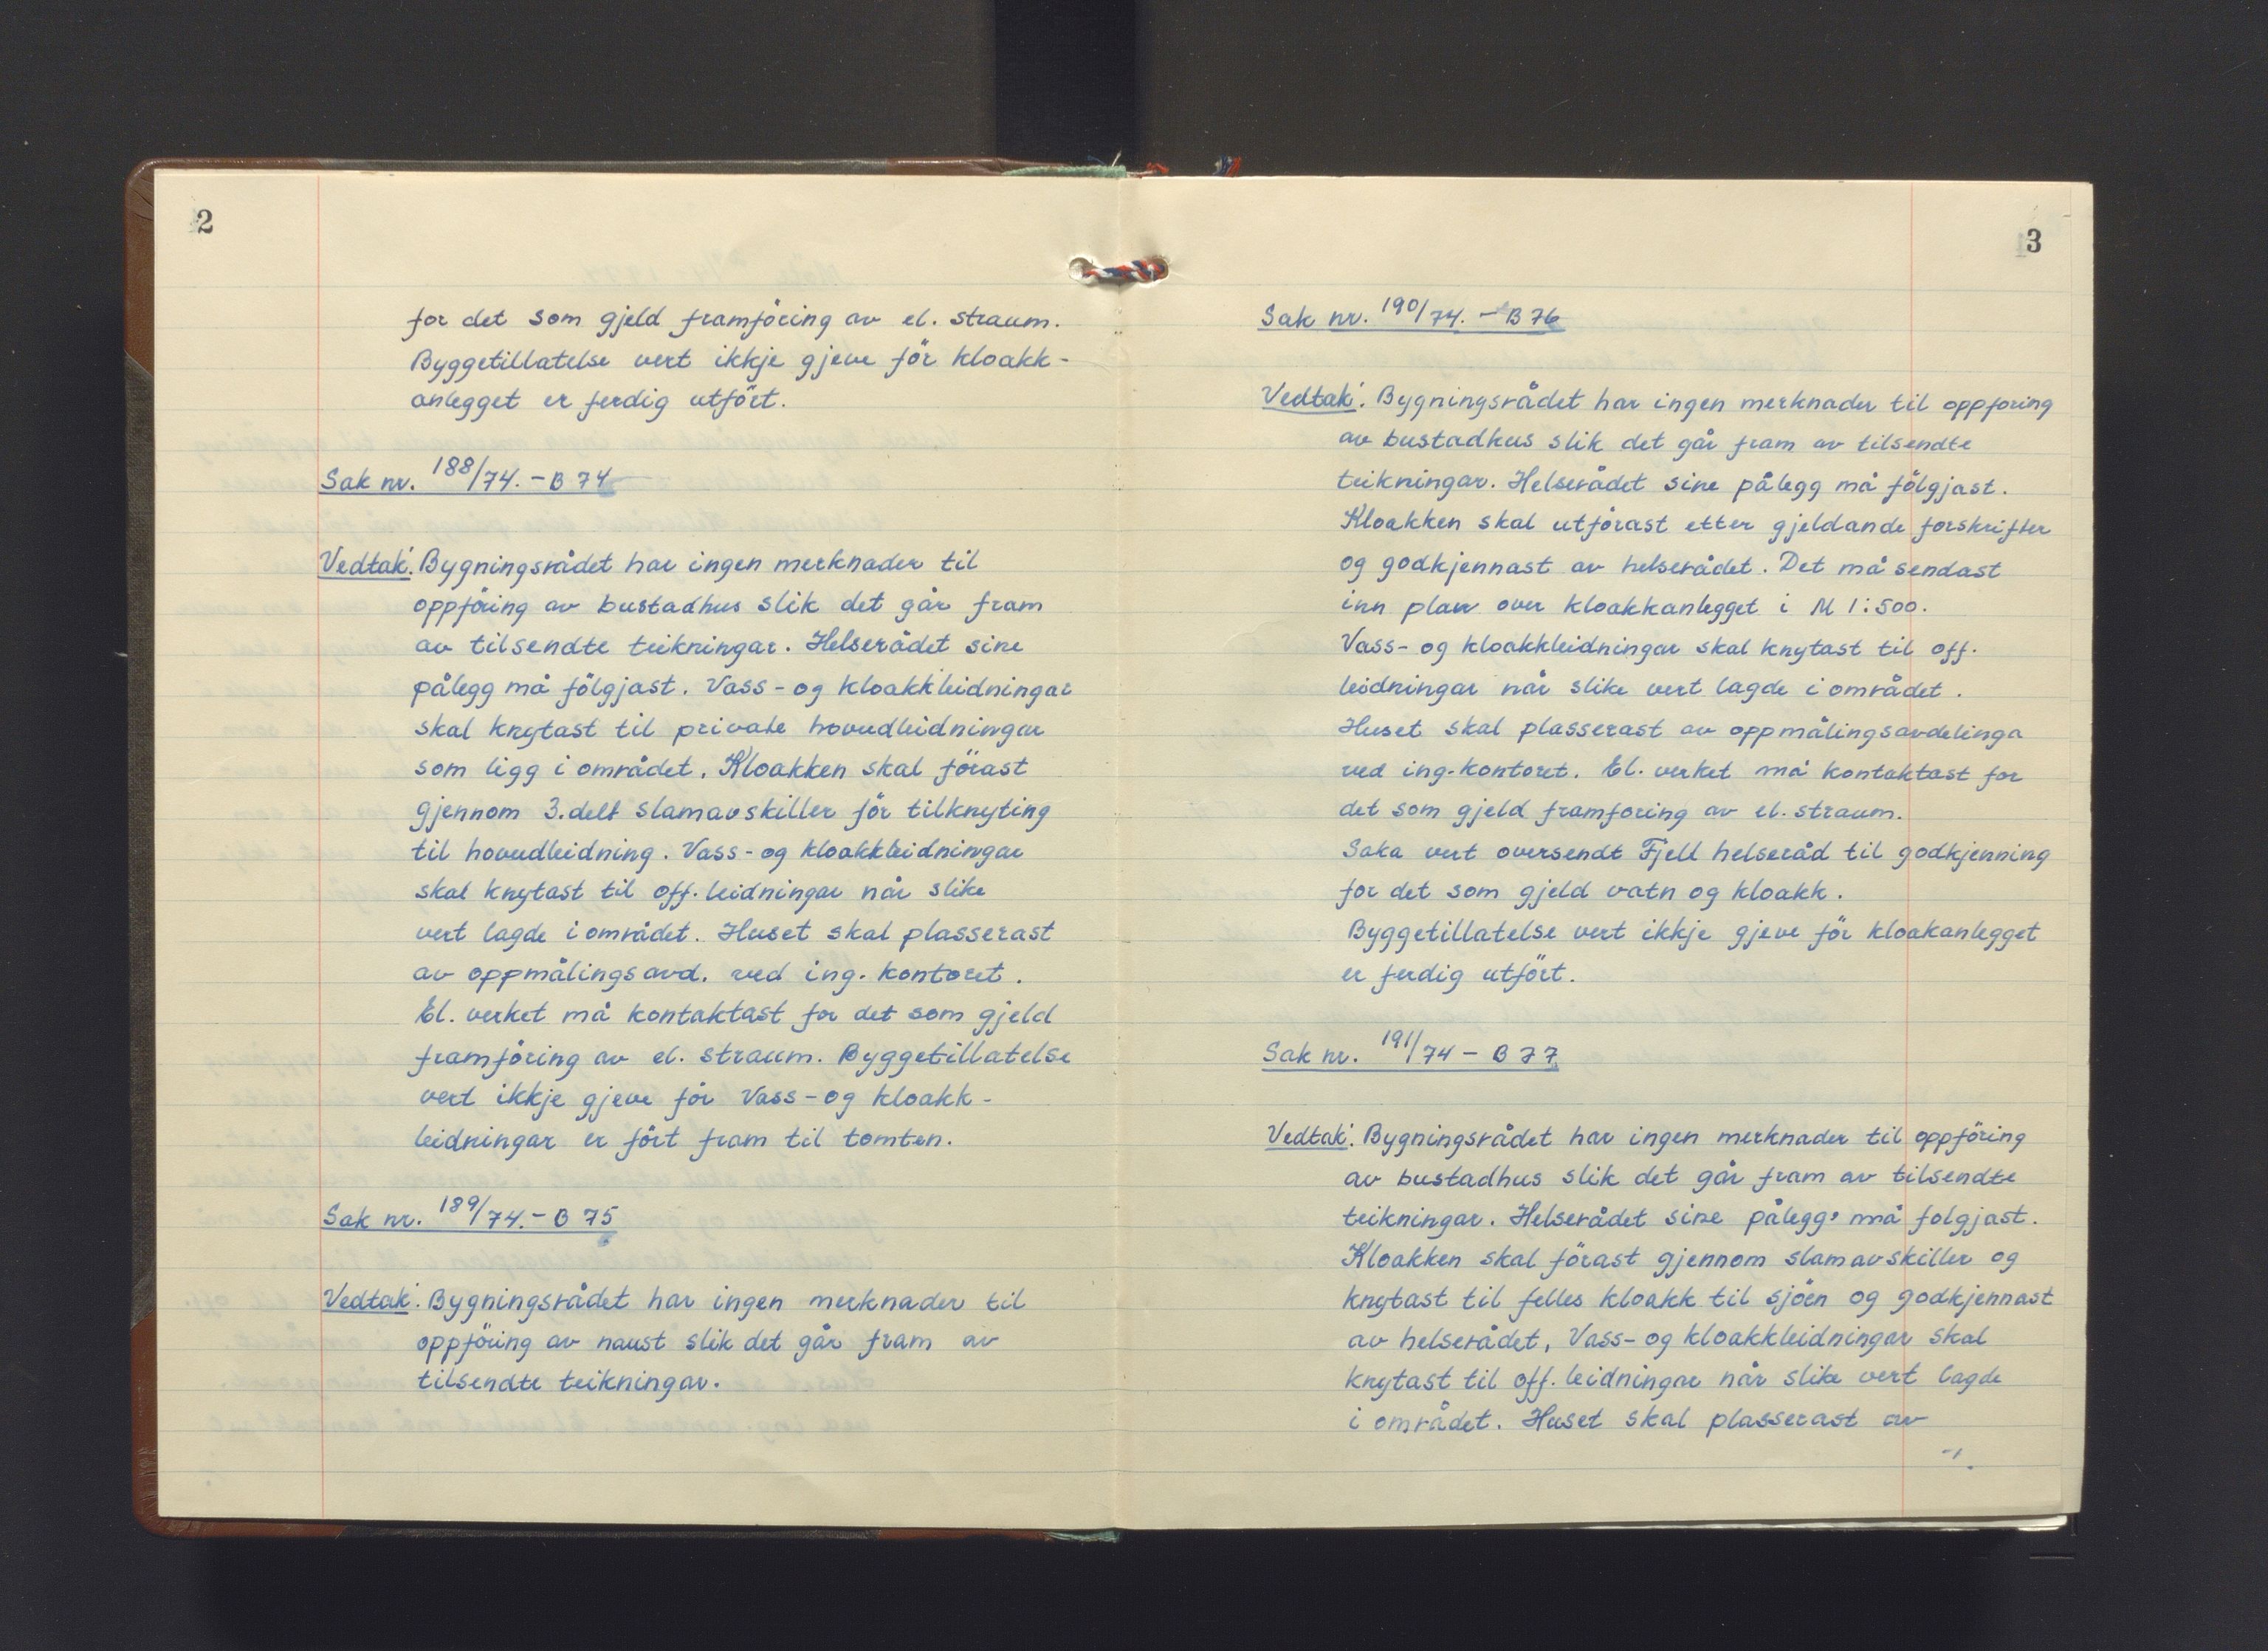 2
for det som gjeld framföring av el. straum.
Byggetillatelse vert ikkje gjeve för kloakk-
anlegget er ferdig utfört.
Sak nr. 188/74. - B 74
Vedtak: Bygningsrådet har ingen merknader til
oppföring av bustadhus slik det går fram
av tilsendte teikningar. Helserådet sine
pålegg må fölgjast. Vass- og kloakkleidningar
skal knytast til private hovudleidningar
som ligg i området. Kloakken skal förast
gjennom 3.delt slamavskiller för tilknyting
til hovudleidning. Vass- og kloakkleidningar
skal knytast til off. leidningar når slike
vert lagde i området. Huset skal plasserast
av oppmålingsavd. ved ing. kontoret.
El. verket må kontaktast for det som gjeld
framföring av el. straum. Byggetillatelse
vert ikkje gjeve för Vass- og kloakk-
leidningar er fört fram til tomten.
Sak nr. 189/74. - B 75
Vedtak: Bygningsrådet har ingen merknader til
oppföring av naust slik det går fram av
tilsendte teikningar.
3
Sak nr. 190/74. - B 76
Vedtak: Bygningsrådet har ingen merknader til oppforing
av bustadhus slik det går fram av tilsendte
teikningar. Helserådet sine pålegg må fölgjast.
Kloakken skal utförast etter gjeldande forskrifter
og godkjennast av helserådet. Det må sendast
inn plan over kloakkanlegget i M 1:500.
Vass- og kloakkleidningar skal knytast til off.
leidningar når slike vert lagde i området.
Huset skal plasserast av oppmålingsavdelinga
ved ing.kontoret. El. verket må kontaktast for
det som gjeld framforing av el. straum.
Saka vert oversendt Fjell helseråd til godkjenning
for det som gjeld vatn og kloakk.
Byggetillatelse vert ikkje gjeve för kloakanlegget
er ferdig utfört.
Sak nr. 191/74 - B 77
Vedtak: Bygningsrådet har ingen merknader til oppföring
av bustadhus slik det går fram av tilsendte
teikningar. Helserådet sine pålegg må folgjast.
Kloakken skal förast gjennom slamavskiller og
knytast til felles kloakk til sjöen og godkjennast
av helserådet, Vass- og kloakkleidningar skal
knytast til off. leidningar når slike vert lagde
i området. Huset skal plasserast av
-/.